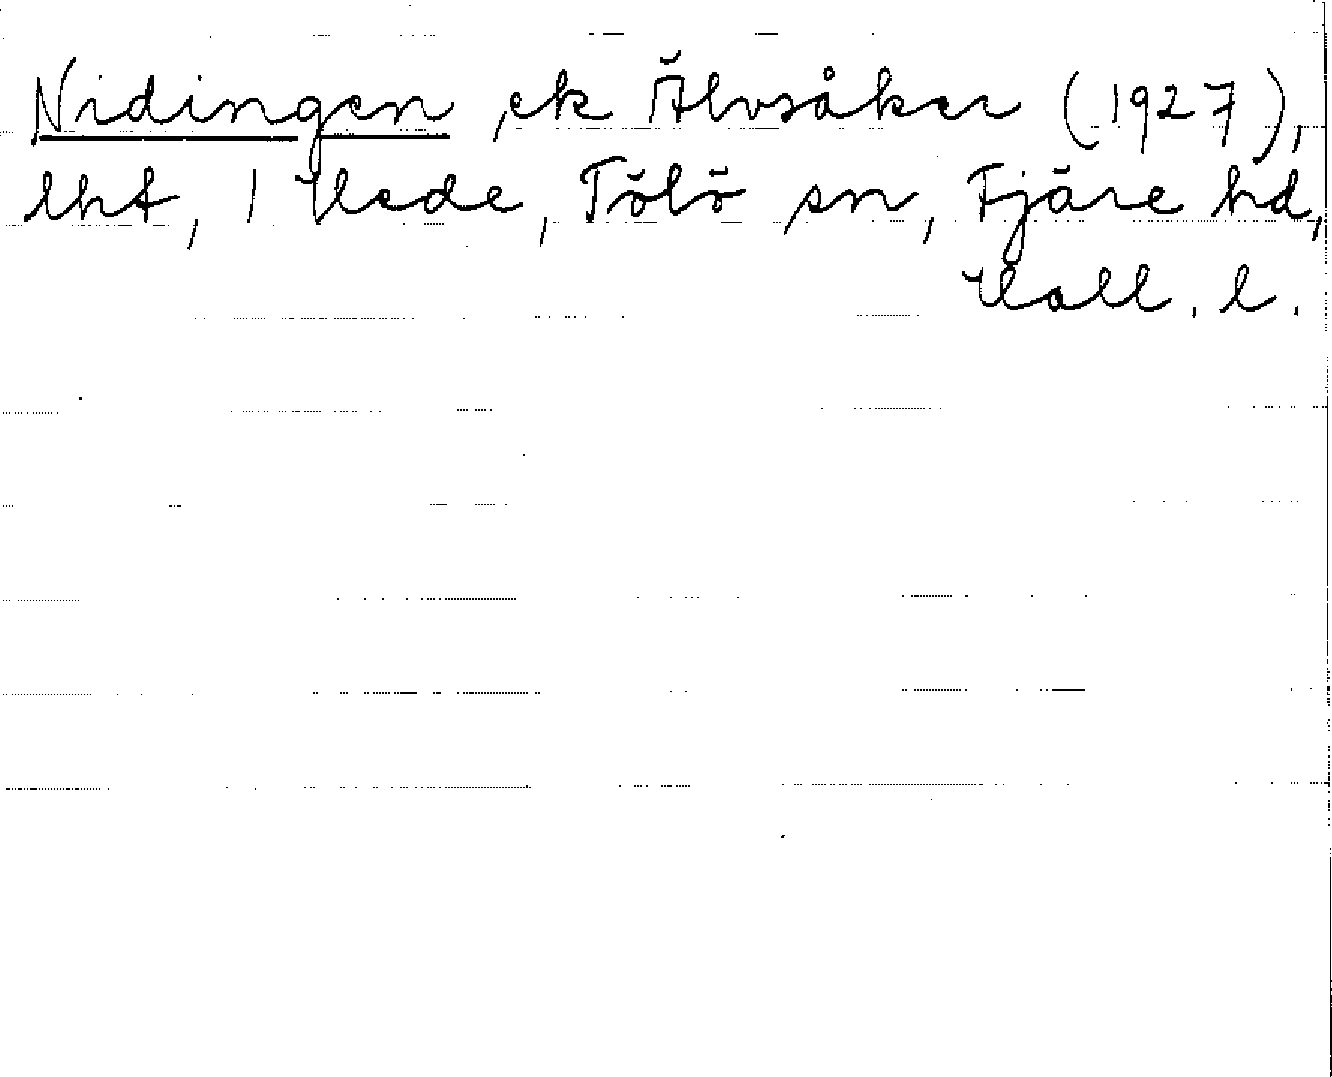 Nidingen, ek Älvsåker (1927),
lht, 1 Hede, Tölö sn, Fjäre hd,
Hall. l.